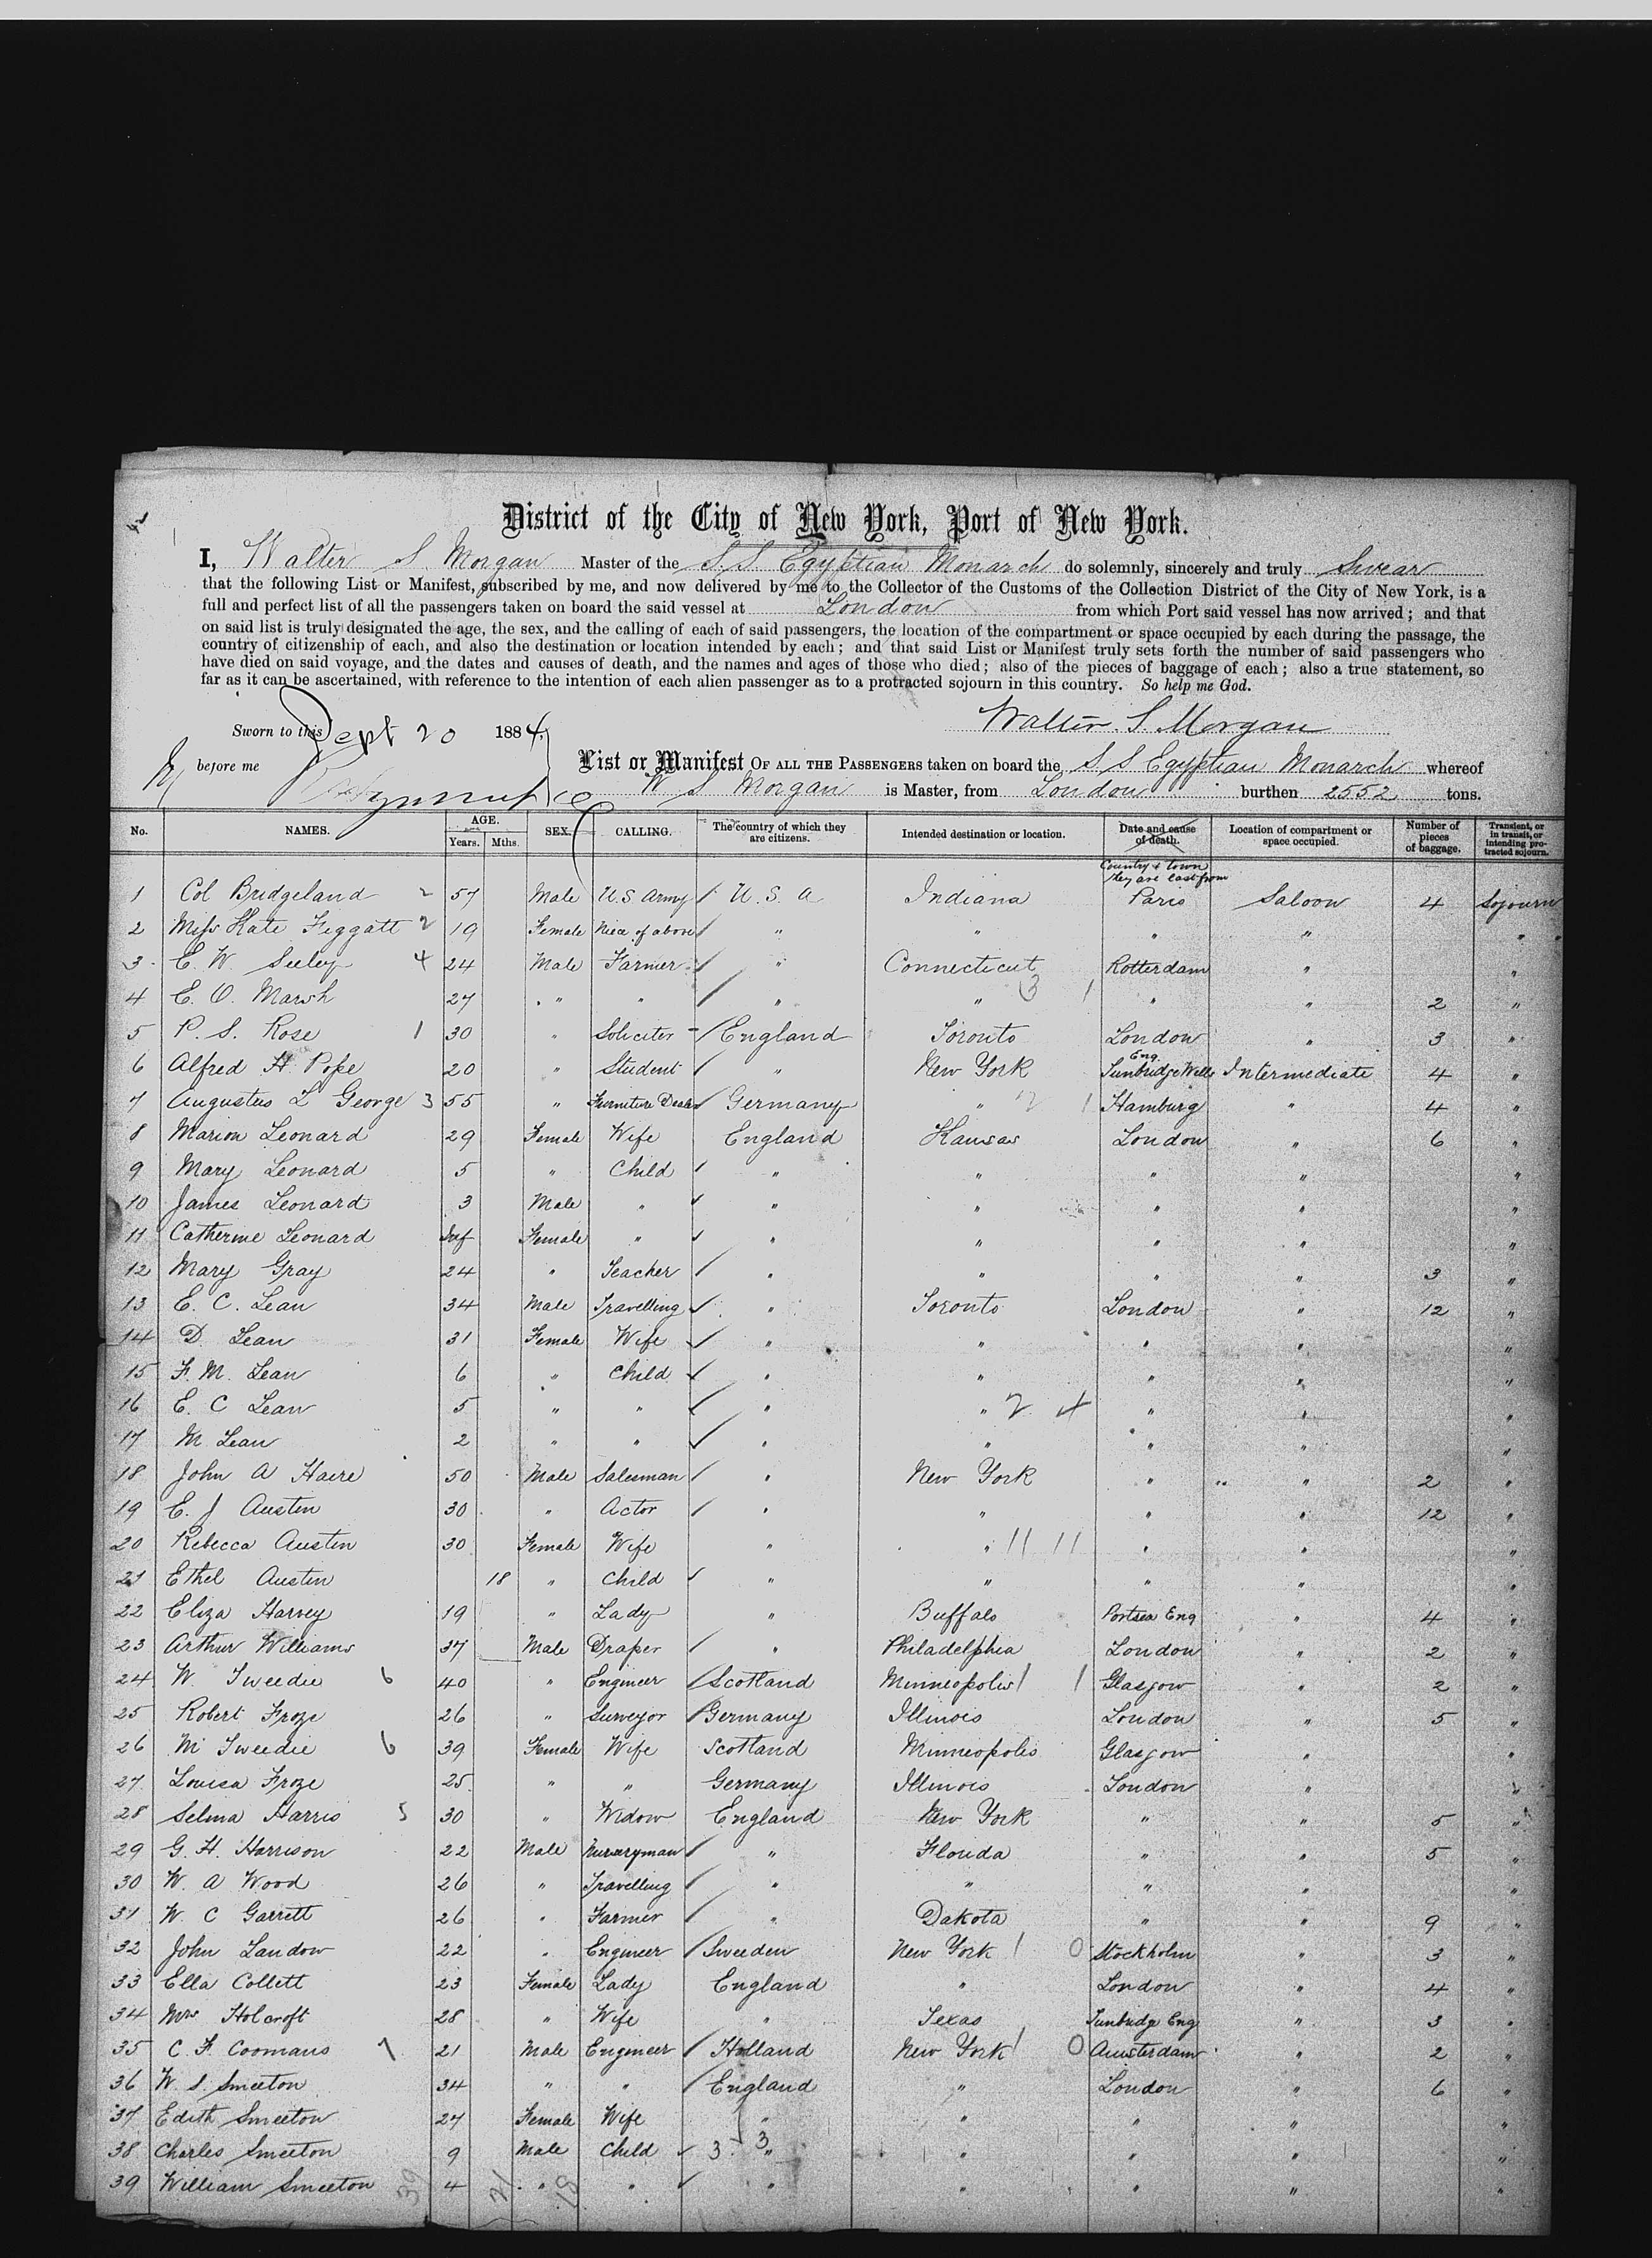 District of the City of New York, Port of New York.
I, Walter S. Morgan Master of the S.S. Egyptian Monarch do solemnly, sincerely and truly Swear
that the following List or Manifest, subscribed by me, and now delivered by me to the Collector of the Customs of the Collection District of the City of New York, is a
full and perfect list of all the passengers taken on board the said vessel at London from which Port said vessel has now arrived; and that
on said list is truly designated the age, the sex, and the calling of each of said passengers, the location of the compartment or space occupied by each during the passage, the
country of citizenship of each, and also the destination or location intended by each; and that said List or Manifest truly sets forth the number of said passengers who
have died on said voyage, and the dates and causes of death, and the names and ages of those who died; also of the pieces of baggage of each; also a true statement, so
far as it can be ascertained, with reference to the intention of each alien passenger as to a protracted sojourn in this country. So help me God.
Walter. S. Morgan
Sworn to this Sept 20 1884,
before me
List or Manifest OF ALL THE PASSENGERS taken on board the S S Egyptian Monarch whereof
W S Morgan is Master, from London burthen 2552 tons.
No. NAMES. AGE. Years. Mths. SEX. CALLING. The country of which they are citizens. Intended destination or location. Date and cause of death. Location of compartment or space occupied. Number of pieces of baggage. Transient, or in transit, or intending protracted sojourn.
Country & town they are last from
1 Col Bridgeland 2 57 Male U.S. Army U. S. A Indiana Paris Saloon 4 Sojourn
2 Miss Kate Feggatt 2 19 Female Niece of above " " " " "
3 E. W. Seeley 4 24 Male Farmer " Connecticut Rotterdam " "
4 E. O. Marsh 27 " " " " 3 1 " " 2 "
5 P. S. Rose 1 30 " Soliciter England Toronto London " 3 "
6 Alfred H Pope 20 " Student " New York Tunbridge Wells Eng. Intermediate 4 "
7 Augustus L George 3 55 " Furniture Dealer Germany " 2 1 Hamburg " 4 "
8 Marion Leonard 29 Female Wife England Kansas London " 6 "
9 Mary Leonard 5 " Child " " " " "
10 James Leonard 3 Male " " " " " "
11 Catherine Leonard Inf Female " " " " " "
12 Mary Gray 24 " Teacher " " " " 3 "
13 E. C. Lean 34 Male Travelling " Toronto London " 12 "
14 D. Lean 31 Female Wife " " " " "
15 F. M. Lean 6 " Child " " " " "
16 E. C Lean 5 " " " " 2 4 " " "
17 M Lean 2 " " " " " " "
18 John A Haire 50 Male Salesman " New York " " 2 "
19 E. J Austin 30 " Actor " " " " 12 "
20 Rebecca Austin 30 Female Wife " " 11 11 " " "
21 Ethel Austin 18 " Child " " " " "
22 Eliza Harvey 19 " Lady " Buffalo Portsea Eng " 4 "
23 Arthur Williams 37 Male Draper " Philadelphia London " 2 "
24 W. Tweedie 6 40 " Engineer Scotland Minneopolis 1 1 Glasgow " 2 "
25 Robert Froze 26 " Surveyor Germany Illinois London " 5 "
26 M Tweedie 6 39 Female Wife Scotland Minneopolis Glasgow " "
27 Louisa Froze 25 " " Germany Illinois London " "
28 Selma Harris 5 30 " Widow England New York " " 5 "
29 G. H. Harrison 22 Male Nurseryman " Florida " " 5 "
30 W. A Wood 26 " Travelling " " " " "
31 W. C Garrett 26 " Farmer " Dakota " " 9 "
32 John Landow 22 " Engineer Sweeden New York 1 0 Stockholm " 3 "
33 Ella Collett 23 Female Lady England " London " 4 "
34 Mrs Holcroft 28 " Wife " Texas Tunbridge Eng " 3 "
35 C. F. Coomans 7 21 Male Engineer Holland New York 1 0 Amsterdam " 2 "
36 W. S. Smeeton 34 " " England " London " 6 "
37 Edith Smeeton 27 Female Wife " " " " "
38 Charles Smeeton 9 Male Child 3 3 " " " " "
39 William Smeeton 4 " " " " " " "
39 21 18